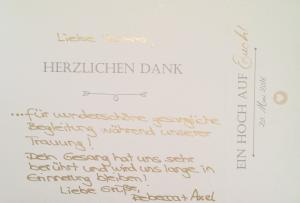 Liebe
HERZLICHEN DANK
...für wunderschöne gesangliche
Begleitung während unserer
Trauung!
Dein Gesang hat uns sehr
berührt und wird uns lange in
Erinnerung bleiben!
Liebe Grüße,
Rebecca + Axel
EIN HOCH AUF Euch!
20. Mai 2016